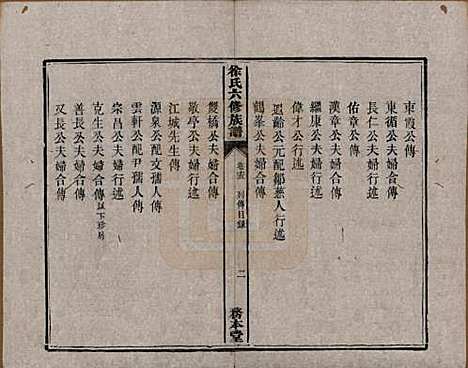 東霞公傳
東循公夫婦合傳
長仁公夫婦行述
佑章公傳
漢章公夫婦行述
繼康公夫婦行述
偉才公行述
遐齡公元配鄒慈人行述
鶴峯公夫婦合傳
徐氏六修族譜
卷首
列傳目錄
二
務本堂
雙橋公夫婦合傳
敬亭公夫婦行述
江城先生傳
源泉公配文孺人傳
雲軒公配尹孺人傳
宗昌公夫婦合傳
克生公夫婦合傳以下珍房
善長公夫婦合傳
又長公夫婦合傳